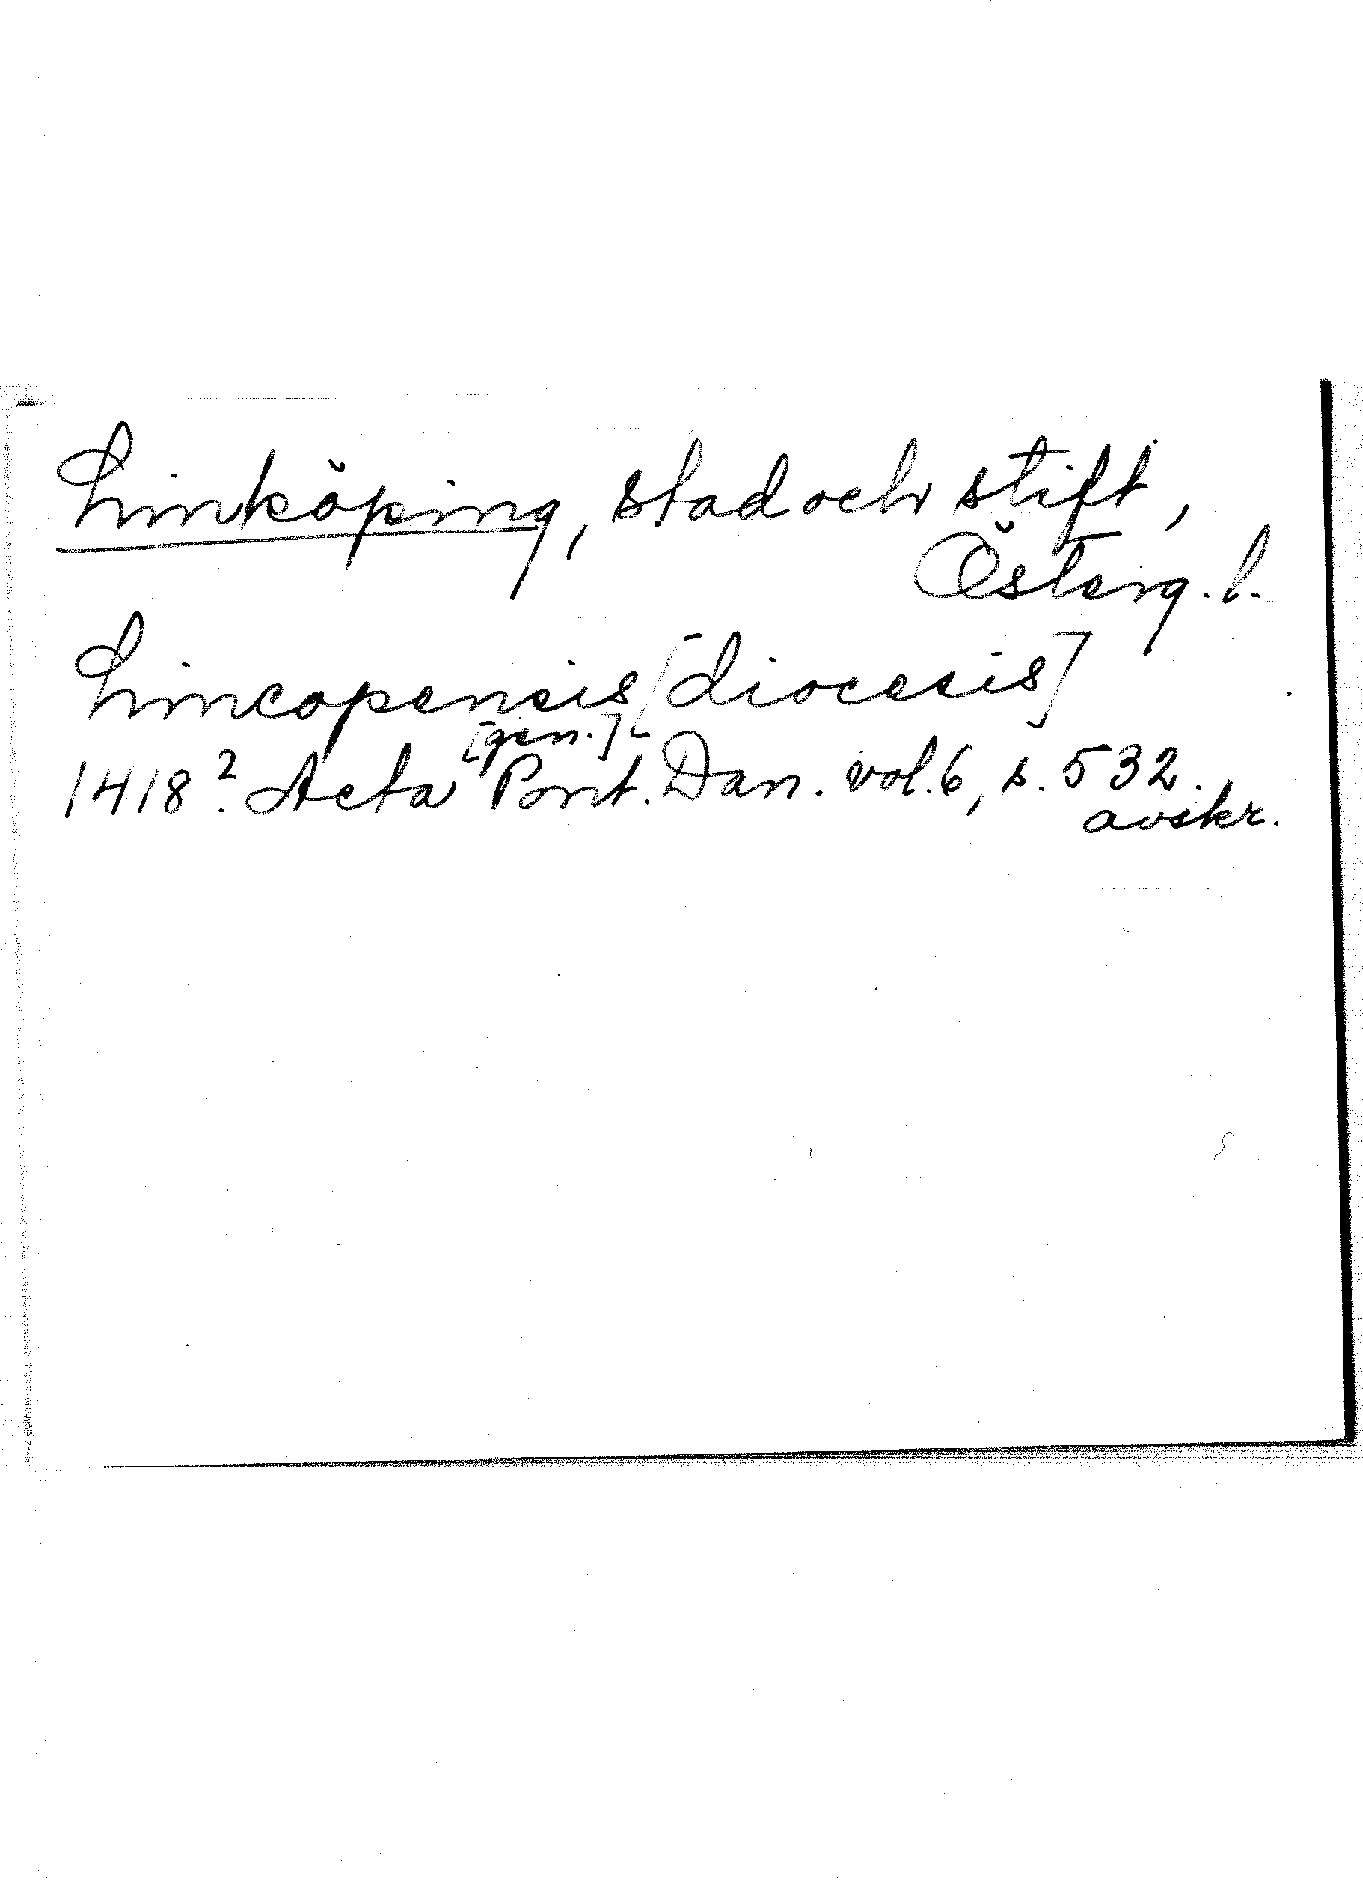 Linköping, stad och stift,
Österg. l.
Lincopensis [diocesis]
[gen.]
1418? Acta Pont. Dan. vol. 6, s. 532.
avskr.